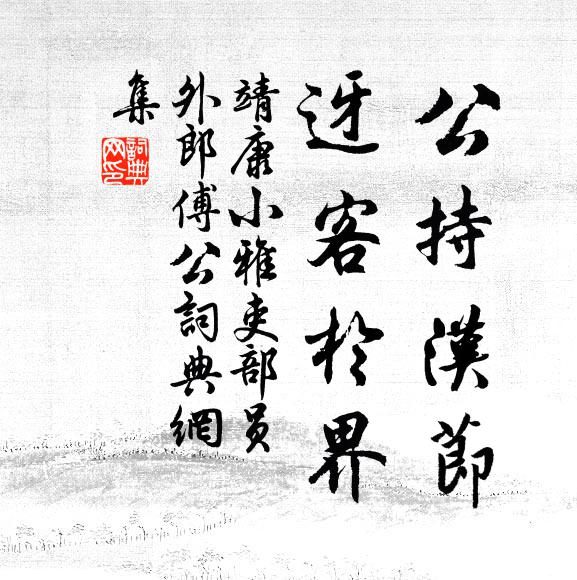 公持漢節
迓客於界
靖康小雅吏部员
外郎傅公詞典網
集
詞典
网印